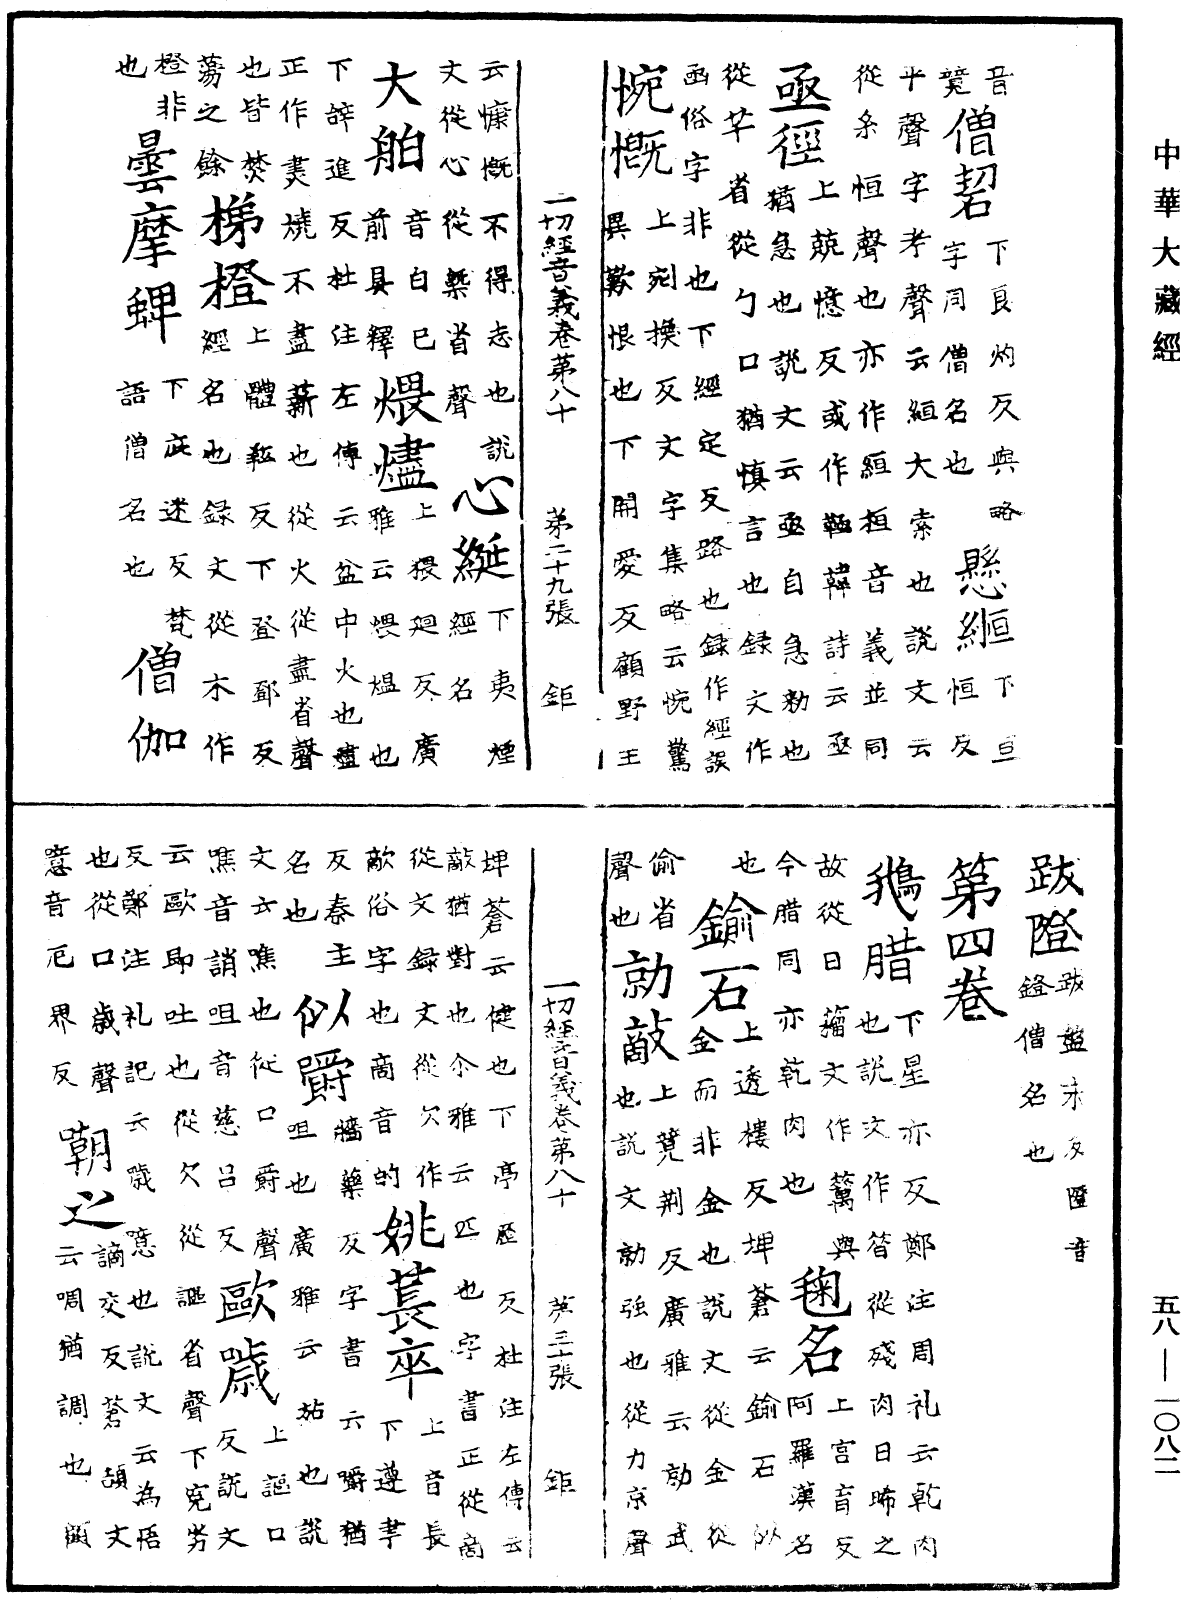 音竟僧䂮下良灼反與略字同僧名也懸縆下亘恒反
平聲字考聲云縆大索也說文云從糸恒聲也亦作絙桓音義並同
亟徑上兢憶反或作韓詩云亟猶急也說文云亟自急勑也
從芊省從勹口猶慎言也錄文作函俗字非也下經定反路也錄作經誤
惋慨上剜換反文字集略云惋驚異歎恨也下開愛反顧野王
一切經音義卷第八十 第二十九張 鉅
云慷慨不得志也說文從心從槩省聲心綖下夷煙經名
大舶音白已前具釋煨燼上猥迴反廣雅云煨熅也
下辝進反杜注左傳云盆中火也燼正作㶳燒不盡薪也從火從盡省聲
也皆焚蕩之餘梯橙上體鞮反下登鄧反經名也錄文從木作
橙非也曇摩蜱下庇迷反梵語僧名也僧伽
跋隥跋盤末反隥音鐙僧名也
第四卷
鵝腊下星亦反鄭注周礼云乾肉也說文作㫺從殘肉日晞之
故從日籀文作與今腊同亦乾肉也毱名上宫育反阿羅漢名
也鍮石上透樓反埤蒼云鍮石似金而非金也說文從金從
俞省聲也勍敵上競荊反廣雅云勍武也說文勍強也從力京聲
一切經音義卷第八十 第三十張 鉅
埤蒼云健也下亭歷反杜注左傳云敵猶對也尒雅云匹也字書正從啇
從文錄文從欠作歒俗字也啇音的姚萇卒上音長下遵聿
反秦主名也似嚼牆藥反字書云嚼猶咀也廣雅云茹也說
文云噍也從口爵聲噍音誚咀音慈呂反歐噦上謳口反說文
云歐即吐也從欠從謳省聲下寃劣反鄭注礼記云噦噫也說文云為悟
也從口歲聲噫音厄界反嘲之謫交反蒼頡文云啁猶調也顧
中華大藏經
五八—一〇八二